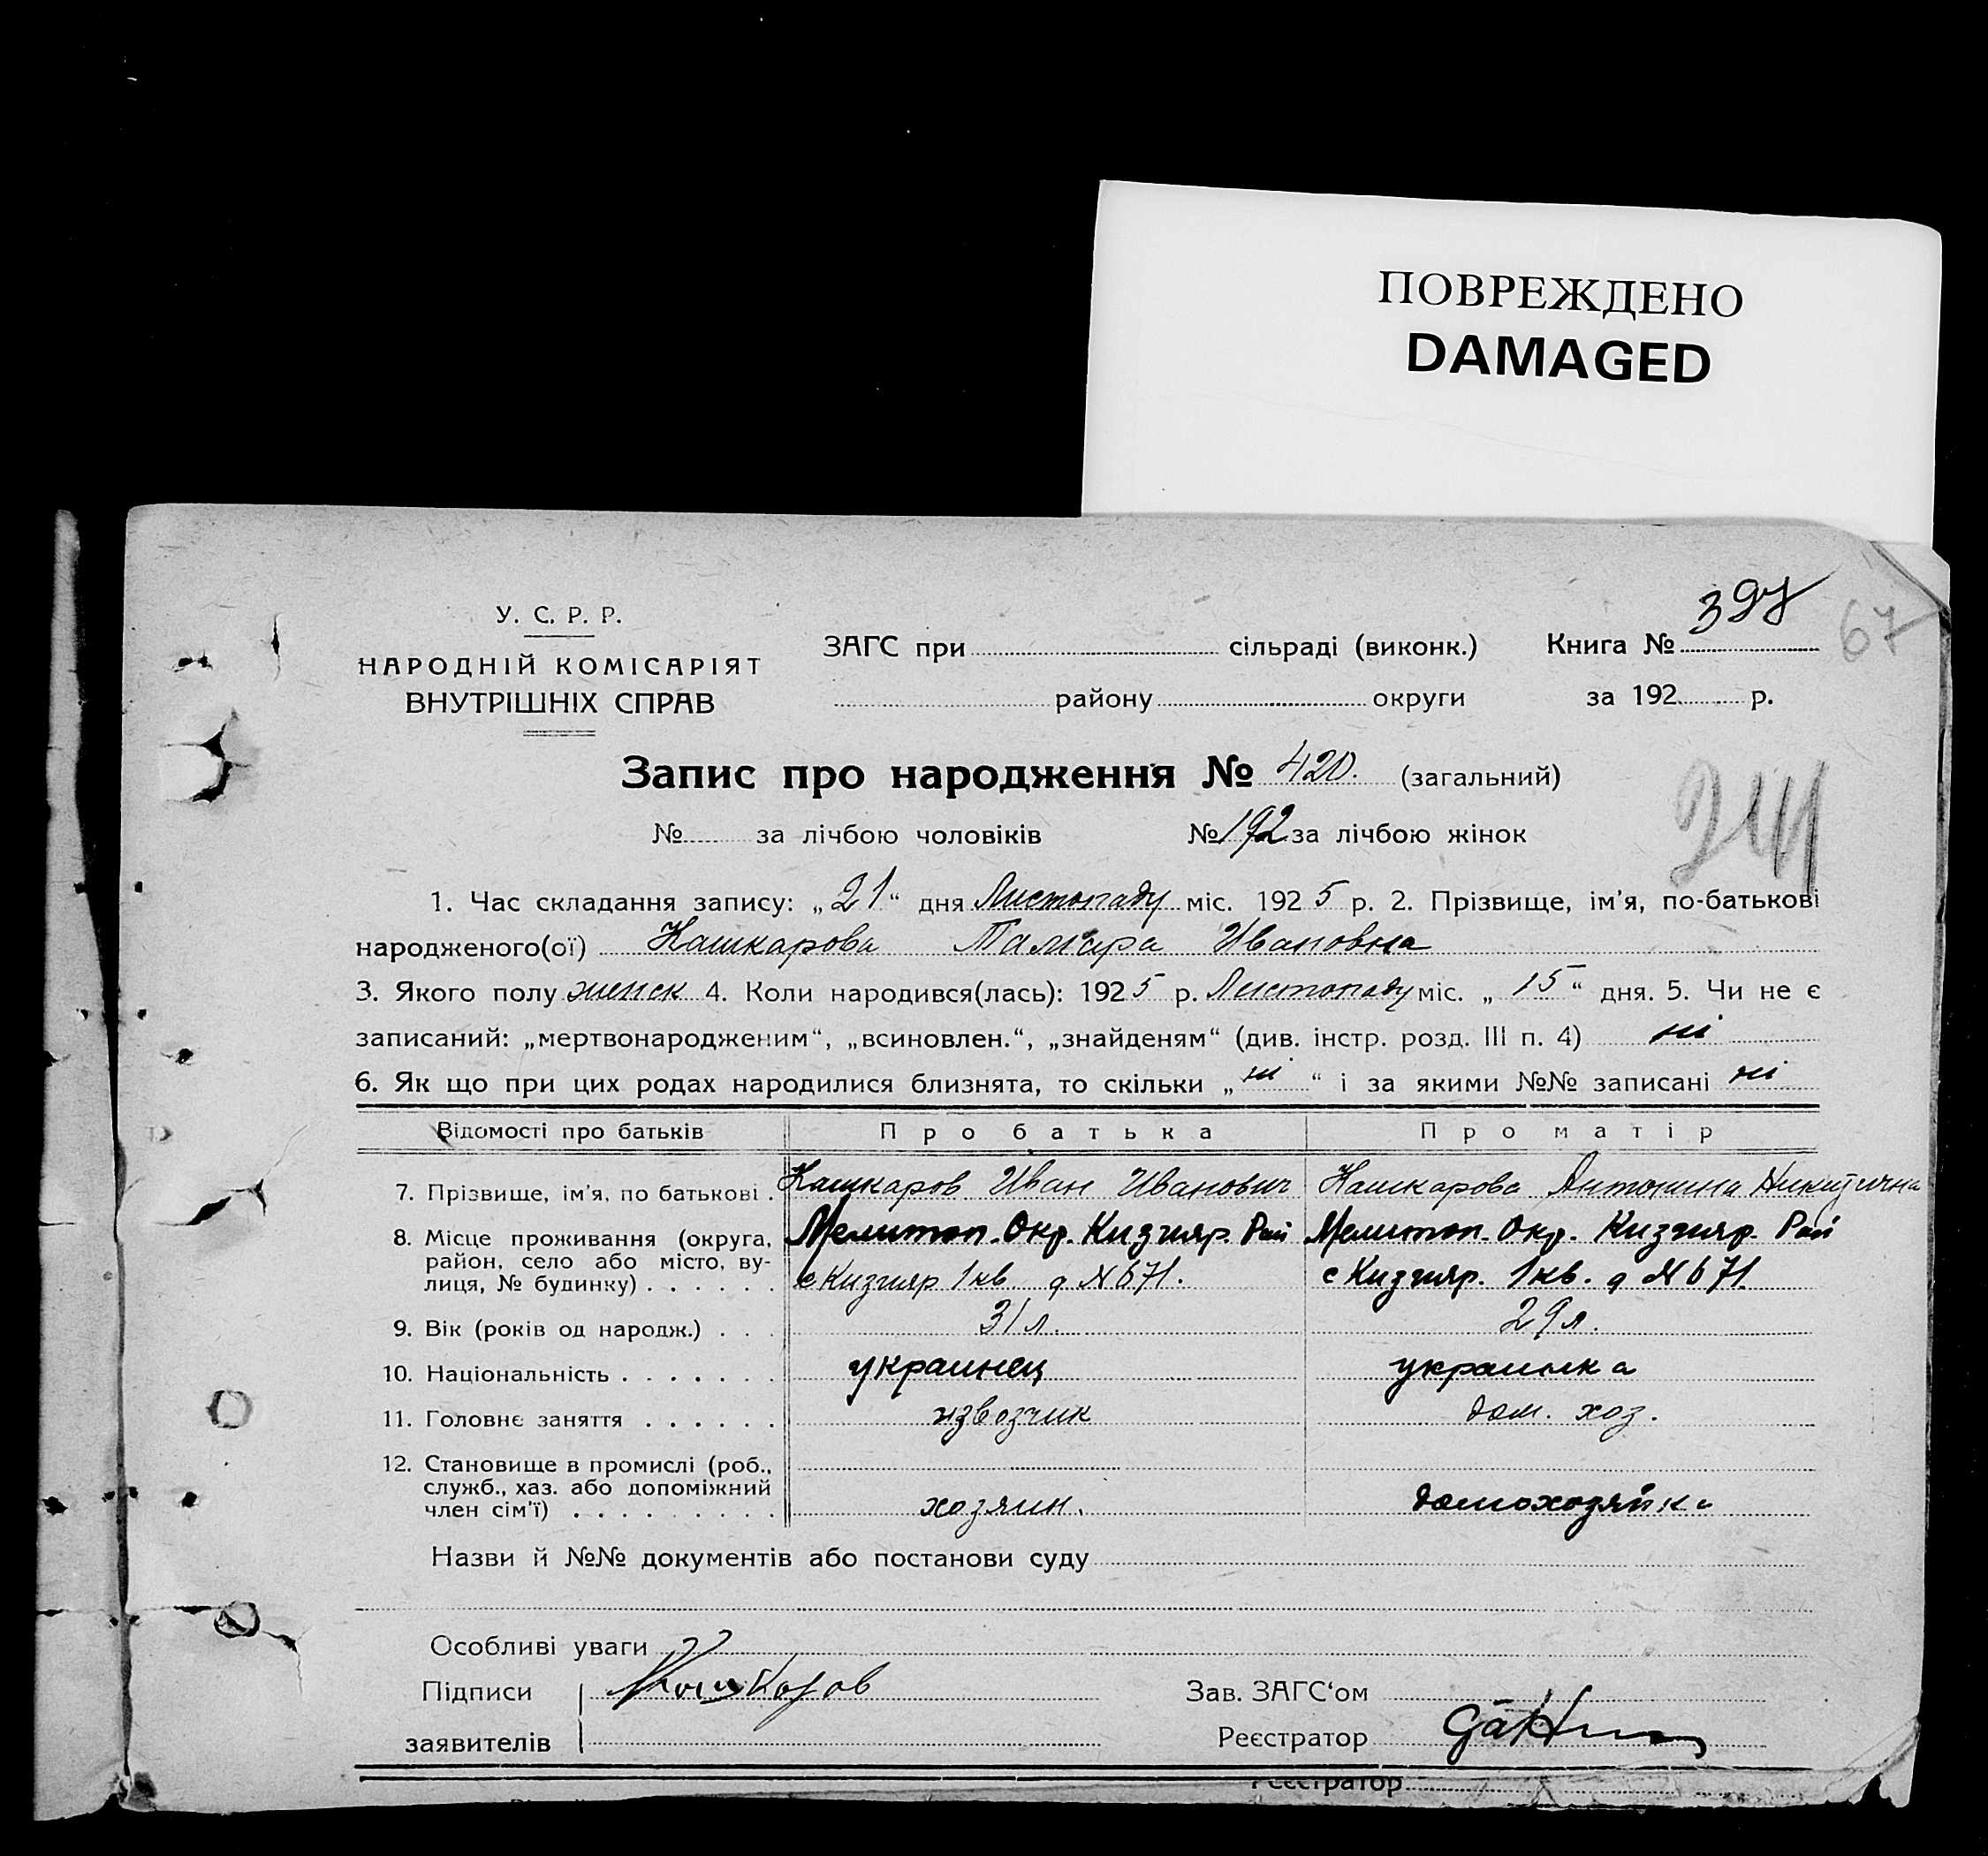 ПОВРЕЖДЕНО
DAMAGED
397
67
У. С. Р. Р.
НАРОДНІЙ КОМІСАРІЯТ
ВНУТРІШНІХ СПРАВ
ЗАГС при сільраді (виконк.)
району округи
Книга №
за 192 р.
Запис про народження № 420. (загальний)
№ за лічбою чоловіків № 192 за лічбою жінок
1. Час складання запису: „21“ дня Листопаду міс. 1925 р. 2. Прізвище, ім'я, по-батькові
народженого(ої) Кашкарова Тамара Ивановна
3. Якого полу женск 4. Коли народився(лась): 1925 р. Листопаду міс. „15“ дня. 5. Чи не є
записаний: „мертвонародженим“, „всиновлен.“, „знайденям“ (див. інстр. розд. III п. 4) ні
6. Як що при цих родах народилися близнята, то скільки „ні“ і за якими №№ записані ні
Відомості про батьків Про батька Про матір
7. Прізвище, ім'я, по батькові . Кашкаров Иван Иванович Кашкарова Антонина Никитична
8. Місце проживання (округа, Мелитоп. Окр. Кизияр. Рай Мелитоп. Окр. Кизияр. Рай
район, село або місто, ву-
лиця, № будинку) . . . . . . с Кизияр 1 кв. д N 671. с Кизияр. 1 кв. д N 671
9. Вік (років од народж.) . . . 31 л. 29 л.
10. Національність . . . . . . . украинец украинка
11. Головнє заняття . . . . . . извозчик дом. хоз.
12. Становище в промислі (роб.,
служб., хаз. або допоміжний
член сім'ї) . . . . . . . . . хозяин. домохозяйка
Назви й №№ документів або постанови суду
Особливі уваги
Підписи Кашкаров Зав. ЗАГС‘ом
заявителів Реєстратор
Реєстратор